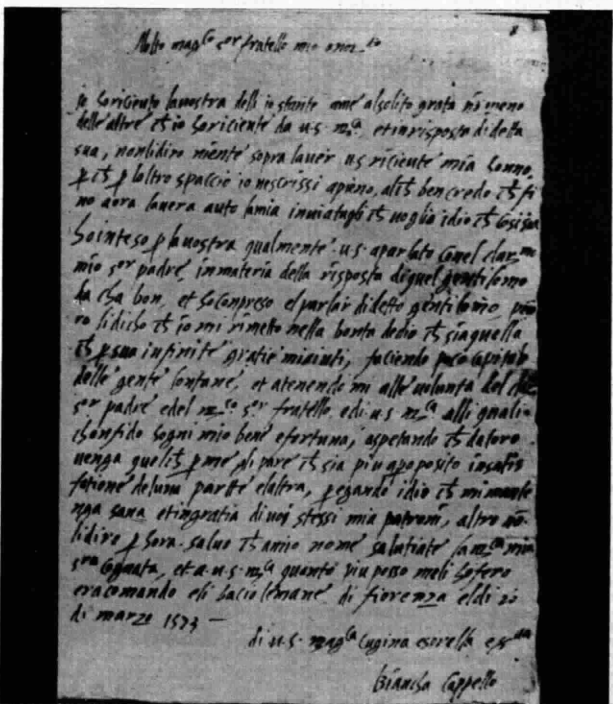 8
Molto mag.co s.or fratello mio onor.do
io ho riceuto la vostra delli io stante a me al solito grata nõ meno
delle altre ch̃ io ho riceute da v.s. m.ca et in risposta di detta
sua, non li diro niente sopra laver v.s. riceute mia
ꝑ ch̃ ꝑ laltro spaccio io ne scrissi apieno, ben credo ch̃ fi
no aora lavera auto la mia inviatagli ch̃ voglio idio ch̃ cosi sia
ho inteso ꝑ la vostra qualmente v.s. a parlato conel clar.mo
mio s.or padre, in materia della risposta di quel gentilomo
da cha bon, et ho conpreso el parlar di detto gentilomo
ro li dicho ch̃ io mi rimeto nella bonta de dio ch̃ sia quella
ch̃ ꝑ sua infinite gratie mi aiuti, faciendo poco capital
delle gente lontane, et atenendo mi alle volunta del
s.or padre e del m.co s.or fratello, e di v.s. m.ca alli quali
chonfido hogni mio bene e fortuna, aspetando ch̃ da loro
venga quel ch̃ ꝑ me li pare ch̃ sia piu a proposito in satis
fatione de luna partte e laltra, pregando idio ch̃ mi mante
nga sana et in gratia di voi stessi mia patroni, altro nõ
li diro ꝑ hora salvo ch̃ a mio nome salutiate la m.ca mia
s.ra cognata, et a v.s. m.ca quanto piu posso me li hofero
e racomando e li bacio le mane di fiorenza el di 20
di marzo 1573 —
di v.s. mag.ca cugina e sorella
Biancha Cappello